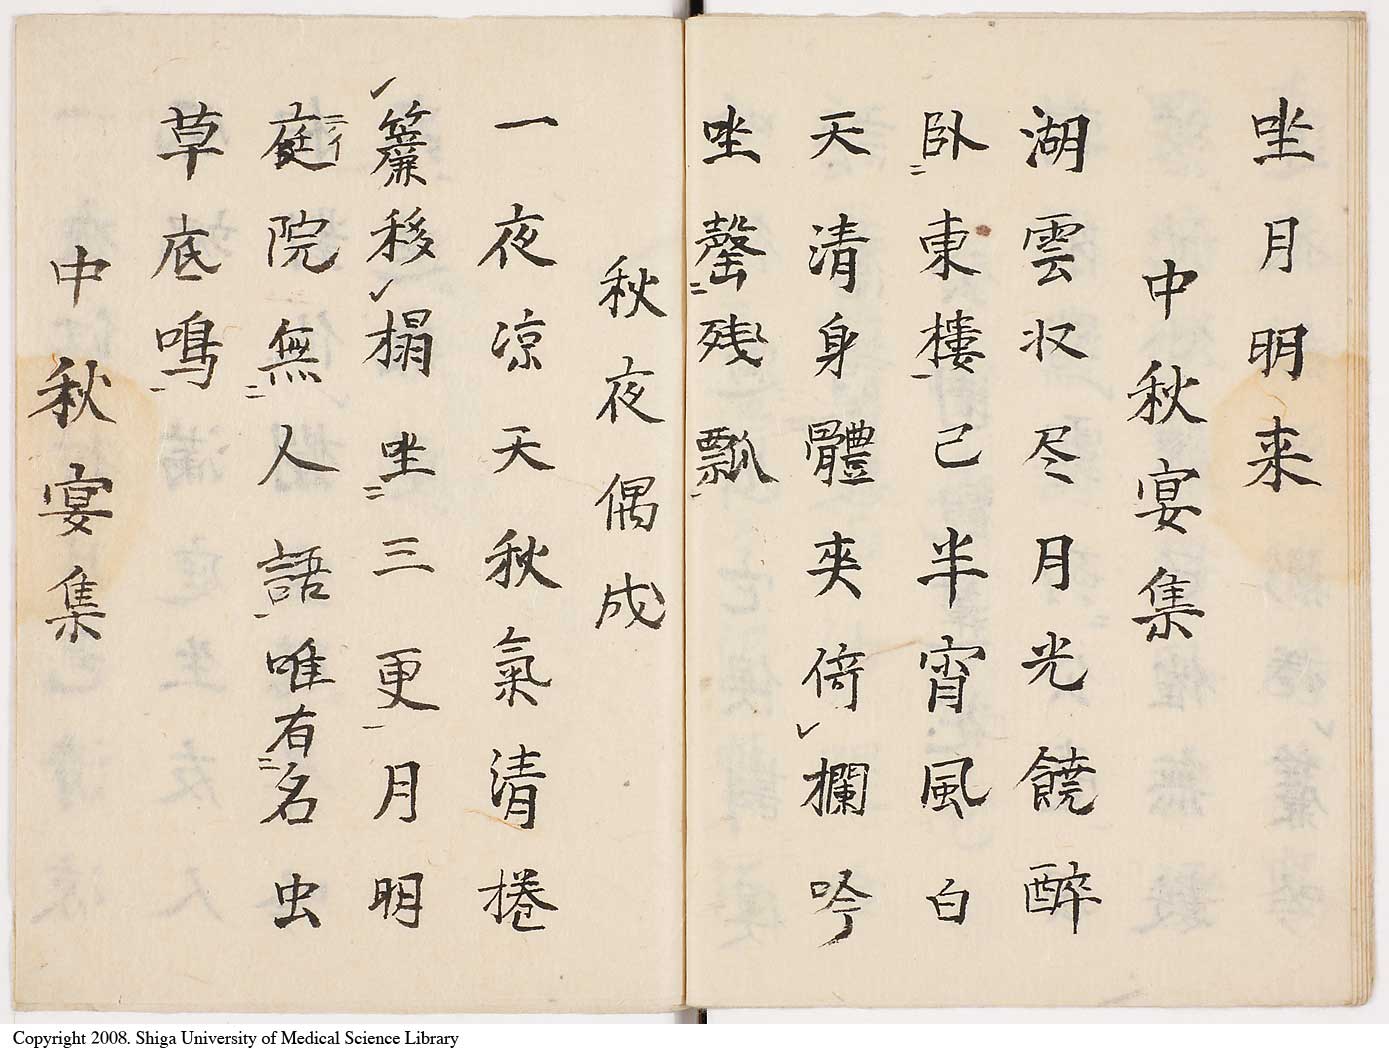 坐月明来
中秋宴集
湖雲収尽月光饒醉
臥東樓已半宵風白
天清身體夾倚欄吟
坐罄残瓢
秋夜偶成
一夜凉天秋氣清捲
簾移榻坐三更月明
庭院無人語唯有名虫
草底鳴
中秋宴集
Copyright 2008. Shiga University of Medical Science Library